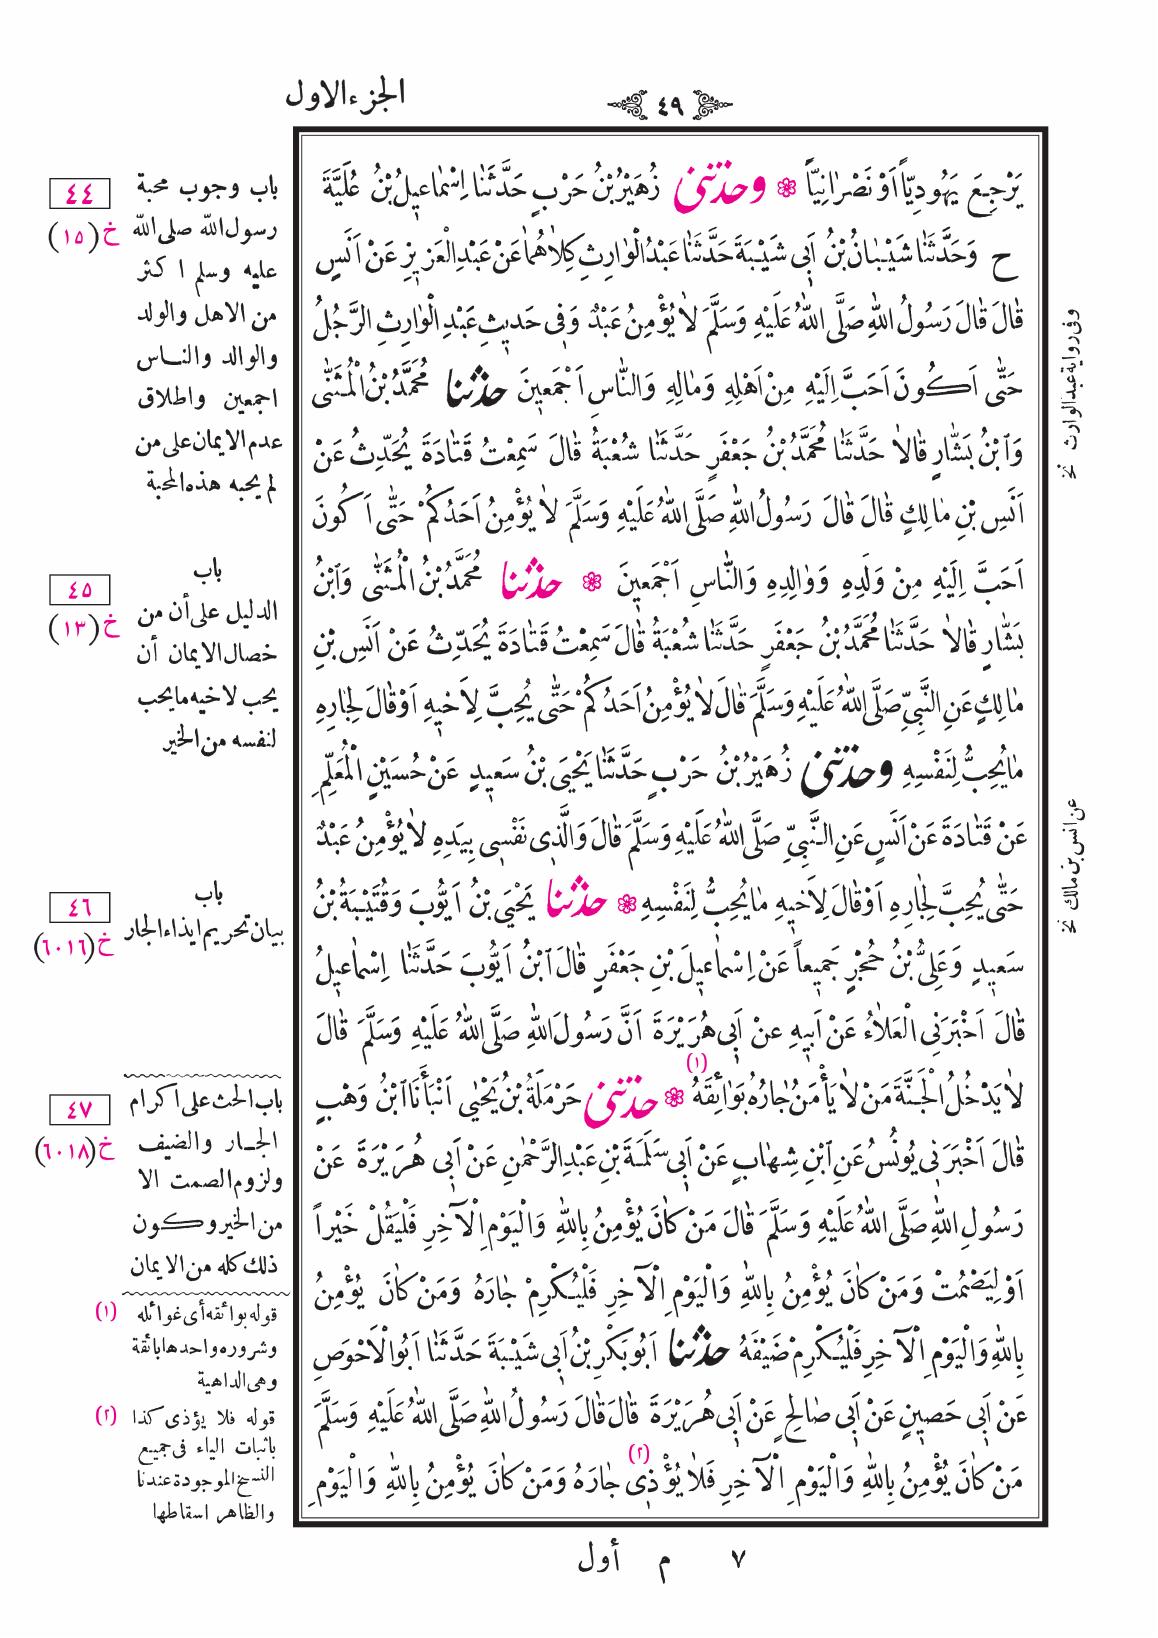 الجزء الاول
٤٩
يَرْجِعَ يَهُودِيّاً اَوْ نَصْرَانِيّاً وحدثنى زُهَيْرُ بْنُ حَرْبٍ حَدَّثَنَا اِسْمَاعِيلُ بْنُ عُلَيَّةَ
ح وَحَدَّثَنَا شَيْبَانُ بْنُ اَبِى شَيْبَةَ حَدَّثَنَا عَبْدُ الْوَارِثِ كِلَاهُمَا عَنْ عَبْدِ الْعَزِيزِ عَنْ اَنَسٍ
قَالَ قَالَ رَسُولُ اللهِ صَلَّى اللهُ عَلَيْهِ وَسَلَّمَ لَا يُؤْمِنُ عَبْدٌ وَفِى حَدِيثِ عَبْدِ الْوَارِثِ الرَّجُلُ
حَتَّى اَكُونَ اَحَبَّ اِلَيْهِ مِنْ اَهْلِهِ وَمَالِهِ وَالنَّاسِ اَجْمَعِينَ حدثنا مُحَمَّدُ بْنُ الْمُثَنَّى
وَابْنُ بَشَّارٍ قَالَا حَدَّثَنَا مُحَمَّدُ بْنُ جَعْفَرٍ حَدَّثَنَا شُعْبَةُ قَالَ سَمِعْتُ قَتَادَةَ يُحَدِّثُ عَنْ
اَنَسِ بْنِ مَالِكٍ قَالَ قَالَ رَسُولُ اللهِ صَلَّى اللهُ عَلَيْهِ وَسَلَّمَ لَا يُؤْمِنُ اَحَدُكُمْ حَتَّى اَكُونَ
اَحَبَّ اِلَيْهِ مِنْ وَلَدِهِ وَوَالِدِهِ وَالنَّاسِ اَجْمَعِينَ حدثنا مُحَمَّدُ بْنُ الْمُثَنَّى وَابْنُ
بَشَّارٍ قَالَا حَدَّثَنَا مُحَمَّدُ بْنُ جَعْفَرٍ حَدَّثَنَا شُعْبَةُ قَالَ سَمِعْتُ قَتَادَةَ يُحَدِّثُ عَنْ اَنَسِ بْنِ
مَالِكٍ عَنِ النَّبِىِّ صَلَّى اللهُ عَلَيْهِ وَسَلَّمَ قَالَ لَا يُؤْمِنُ اَحَدُكُمْ حَتَّى يُحِبَّ لِاَخِيهِ اَوْ قَالَ لِجَارِهِ
مَا يُحِبُّ لِنَفْسِهِ وحدثنى زُهَيْرُ بْنُ حَرْبٍ حَدَّثَنَا يَحْيَى بْنُ سَعِيدٍ عَنْ حُسَيْنٍ الْمُعَلِّمِ
عَنْ قَتَادَةَ عَنْ اَنَسٍ عَنِ النَّبِىِّ صَلَّى اللهُ عَلَيْهِ وَسَلَّمَ قَالَ وَالَّذِى نَفْسِى بِيَدِهِ لَا يُؤْمِنُ عَبْدٌ
حَتَّى يُحِبَّ لِجَارِهِ اَوْ قَالَ لِاَخِيهِ مَا يُحِبُّ لِنَفْسِهِ حدثنا يَحْيَى بْنُ اَيُّوبَ وَقُتَيْبَةُ بْنُ
سَعِيدٍ وَعَلِىُّ بْنُ حُجْرٍ جَمِيعاً عَنْ اِسْمَاعِيلَ بْنِ جَعْفَرٍ قَالَ ابْنُ اَيُّوبَ حَدَّثَنَا اِسْمَاعِيلُ
قَالَ اَخْبَرَنِى الْعَلَاءُ عَنْ اَبِيهِ عَنْ اَبِى هُرَيْرَةَ اَنَّ رَسُولَ اللهِ صَلَّى اللهُ عَلَيْهِ وَسَلَّمَ قَالَ
لَا يَدْخُلُ الْجَنَّةَ مَنْ لَا يَأْمَنُ جَارُهُ بَوَائِقَهُ (١) حدثنى حَرْمَلَةُ بْنُ يَحْيَى اَنْبَأَنَا ابْنُ وَهْبٍ
قَالَ اَخْبَرَنِى يُونُسُ عَنِ ابْنِ شِهَابٍ عَنْ اَبِى سَلَمَةَ بْنِ عَبْدِ الرَّحْمٰنِ عَنْ اَبِى هُرَيْرَةَ عَنْ
رَسُولِ اللهِ صَلَّى اللهُ عَلَيْهِ وَسَلَّمَ قَالَ مَنْ كَانَ يُؤْمِنُ بِاللهِ وَالْيَوْمِ الْآخِرِ فَلْيَقُلْ خَيْراً
اَوْ لِيَصْمُتْ وَمَنْ كَانَ يُؤْمِنُ بِاللهِ وَالْيَوْمِ الْآخِرِ فَلْيُكْرِمْ جَارَهُ وَمَنْ كَانَ يُؤْمِنُ
بِاللهِ وَالْيَوْمِ الْآخِرِ فَلْيُكْرِمْ ضَيْفَهُ حدثنا اَبُو بَكْرِ بْنُ اَبِى شَيْبَةَ حَدَّثَنَا اَبُو الْاَحْوَصِ
عَنْ اَبِى حَصِينٍ عَنْ اَبِى صَالِحٍ عَنْ اَبِى هُرَيْرَةَ قَالَ قَالَ رَسُولُ اللهِ صَلَّى اللهُ عَلَيْهِ وَسَلَّمَ
مَنْ كَانَ يُؤْمِنُ بِاللهِ وَالْيَوْمِ الْآخِرِ فَلَا يُؤْذِى (٢) جَارَهُ وَمَنْ كَانَ يُؤْمِنُ بِاللهِ وَالْيَوْمِ
وفى رواية عبد الوارث نخ
عن انس بن مالك نخ
باب وجوب محبة
رسول الله صلى الله
عليه وسلم اكثر
من الاهل والولد
والوالد والناس
اجمعين واطلاق
عدم الايمان على من
لم يحبه هذه المحبة
٤٤
خ (١٥)
باب
الدليل على أن من
خصال الايمان أن
يحب لاخيه ما يحب
لنفسه من الخير
٤٥
خ (١٣)
باب
بيان تحريم ايذاء الجار
٤٦
خ (٦٠١٦)
باب الحث على اكرام
الجار والضيف
ولزوم الصمت الا
من الخير وكون
ذلك كله من الايمان
٤٧
خ (٦٠١٨)
(١) قوله بوائقه أى غوائله
وشروره واحدها بائقة
وهى الداهية
(٢) قوله فلا يؤذى كذا
باثبات الياء فى جميع
النسخ الموجودة عندنا
والظاهر اسقاطها
٧ م أول